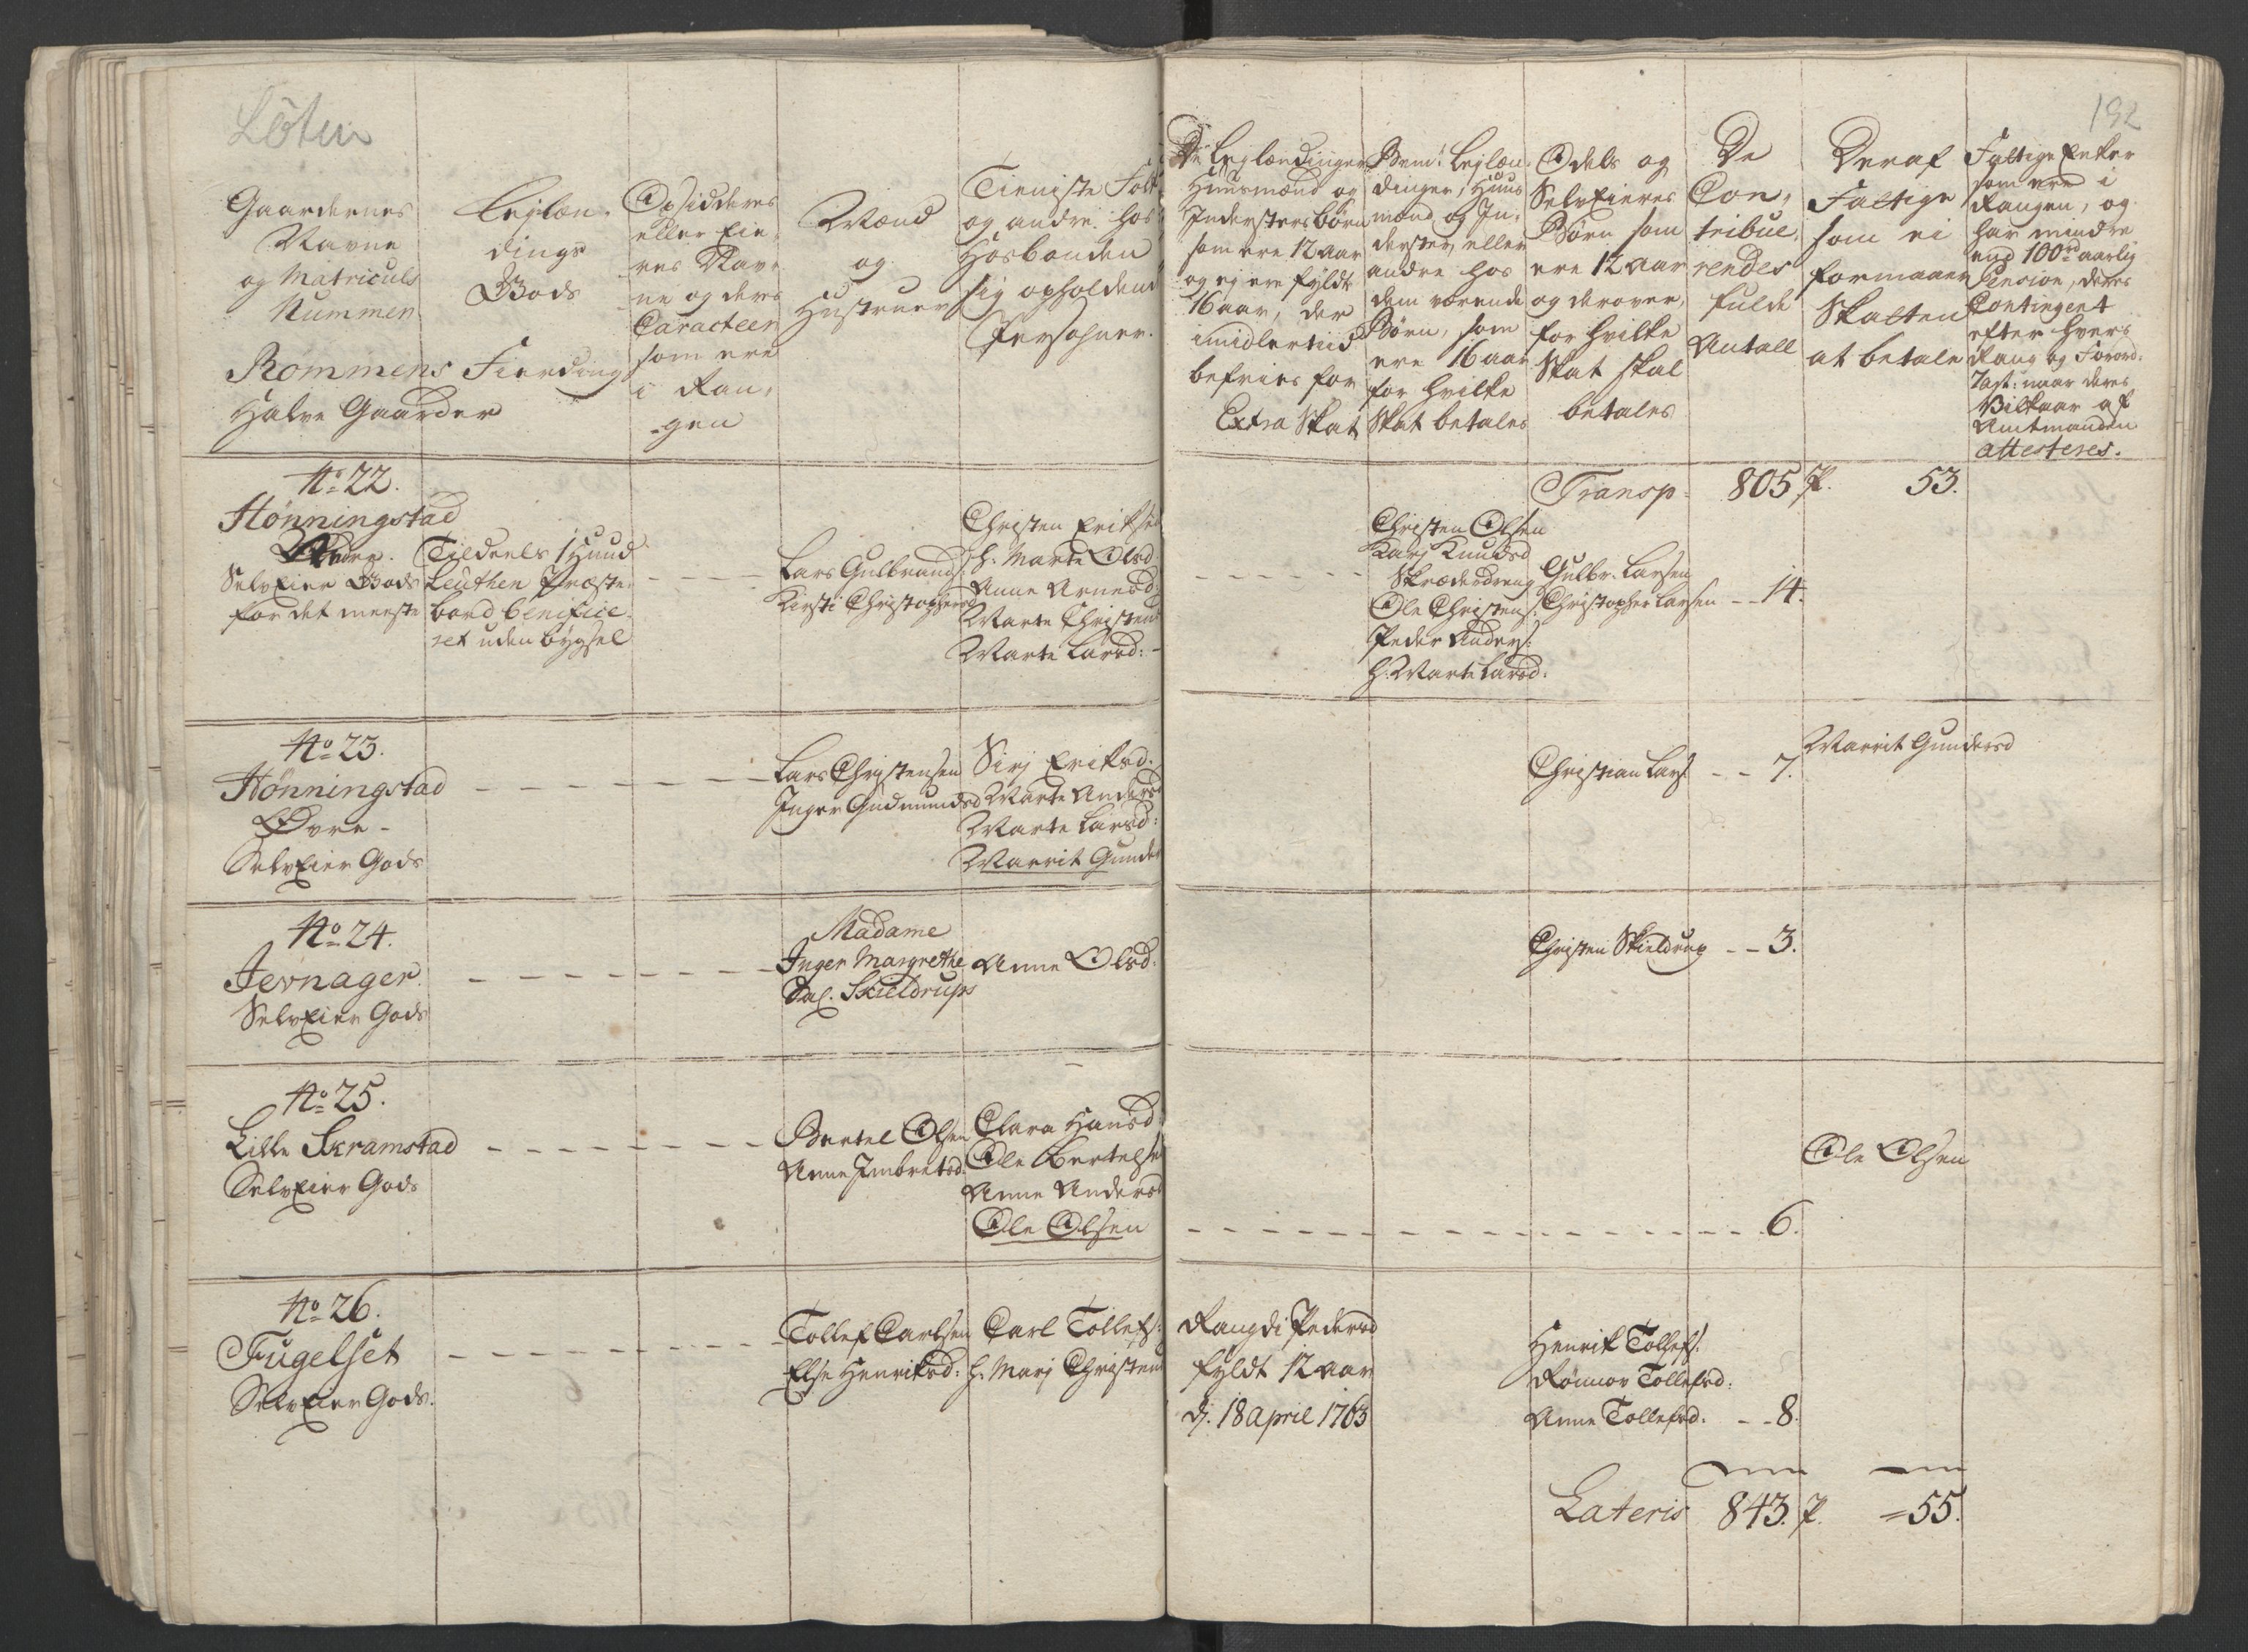 Löten
192
Gaardernes
Navne
og Matriculs
Nummer
Rommens Fierding
Halve Gaarder
Lejlæn-
dings
Gods
Opsidderes
eller Eie-
res Nav-
ne og deres
Caracteer
som ere
i Ran-
gen
Mænd
og
Hustruer
Tieniste Folk
og andre hos
Hosbonden
sig opholdend
Personer.
De Lejlændinger
Huusmænd og
Inderstersbørn
som ere 12 aar
og ej ere fyldt
16 aar, der
imidlertiid
befries for
Extra Skat
Bem: Lejlæn-
dinger, Huus
mænd og In-
derster eller
andre hos
dem værende
Børn, som
ere 16 aar
for hvilke
Skat betales
Odels og
SelvEieres
Børn som
ere 12 aar
og derover,
for hvilke
Skat skal
betales
De
Con-
tribue-
rendes
fulde
Antall
Deraf
Fattige
som ei
formaaer
Skatten
at betale
Fattige Enker
som ere i
Rangen, og
har mindre
end 100rd aarlig
Pension, deres
Contingent
efter hvers
Rang og Forord:
7 art: naar deres
Vilkaar af
Amtmanden
attesteres.
Transp: 805 P. 53.
No 22.
Hønningstad
Nedre.
SelvEier Gods
for det meeste
Tildeels 1 Huud
Leuthen Præste-
bord benefice-
ret uden bygsel
Lars Gulbrands:
Kirsti Christophersd
Christen Eriksen
h: Marte Olsd
Anne Arnesd
Marte Christens
Marte Larsd:
Christen Olsen
Karj Knudsd
Skræderdreng
Ole Christens:
Peder Anders:
h. Marte Larsd:
Gulbr: Larsen
Christopher Larsen
14.
No 23.
Hønningstad
Øvre
SelvEier Gods
Lars Christensen
Inger Gudmundsd
Sirj Eriksd.
Marte Andersd
Marte Larsd:
Marrit Gunder
Christian Lars:
7.
Marrit Gundersd
No 24.
Jevnager.
SelvEier Gods
Madame
Inger Margrethe
Sal. Skieldrups
Anne Olsd:
Christen Skieldrup
3.
No 25.
Lille Skramstad
SelvEier Gods
Bertel Olsen
Anne Imbretsd:
Clara Hansd
Ole Bertelsen
Anne Andersd
Ole Olsen
6.
Ole Olsen
No 26.
Fugelset
SelvEier Gods.
Tollef Carlsen
Else Henriksd:
Carl Tollefs:
h. Marj Christens
Rangdi Pedersd
fyldt 12 aar
d. 18 April 1763
Henrik Tollefs:
Rønnov Tollefsd:
Anne Tollefsd:
8.
Lateris 843. P. 55.